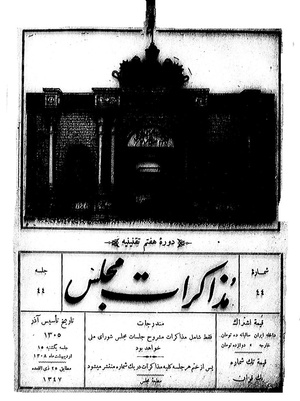 دورهٔ هفتم تقنینیه
جلسه
۴۴
مذاکرات مجلس
شماره
۴۴
تاریخ تأسیس آذر
۱۳۰۵
جلسه یکشنبه ۱۵
اردیبهشت ماه ۱۳۰۸
مطابق ۲۵ ذی القعده
۱۳۴۷
مندرجات
فقط شامل مذاکرات مشروح جلسات مجلس شورای ملی
خواهد بود
پس از ختم هر جلسه کلیه مذاکرات در یک شماره منتشر میشود
مطبعهٔ مجلس
قیمت اشتراک
داخله ایران سالیانه ده تومان
خارجه » دوازده تومان
قیمت تک شماره
یک قران